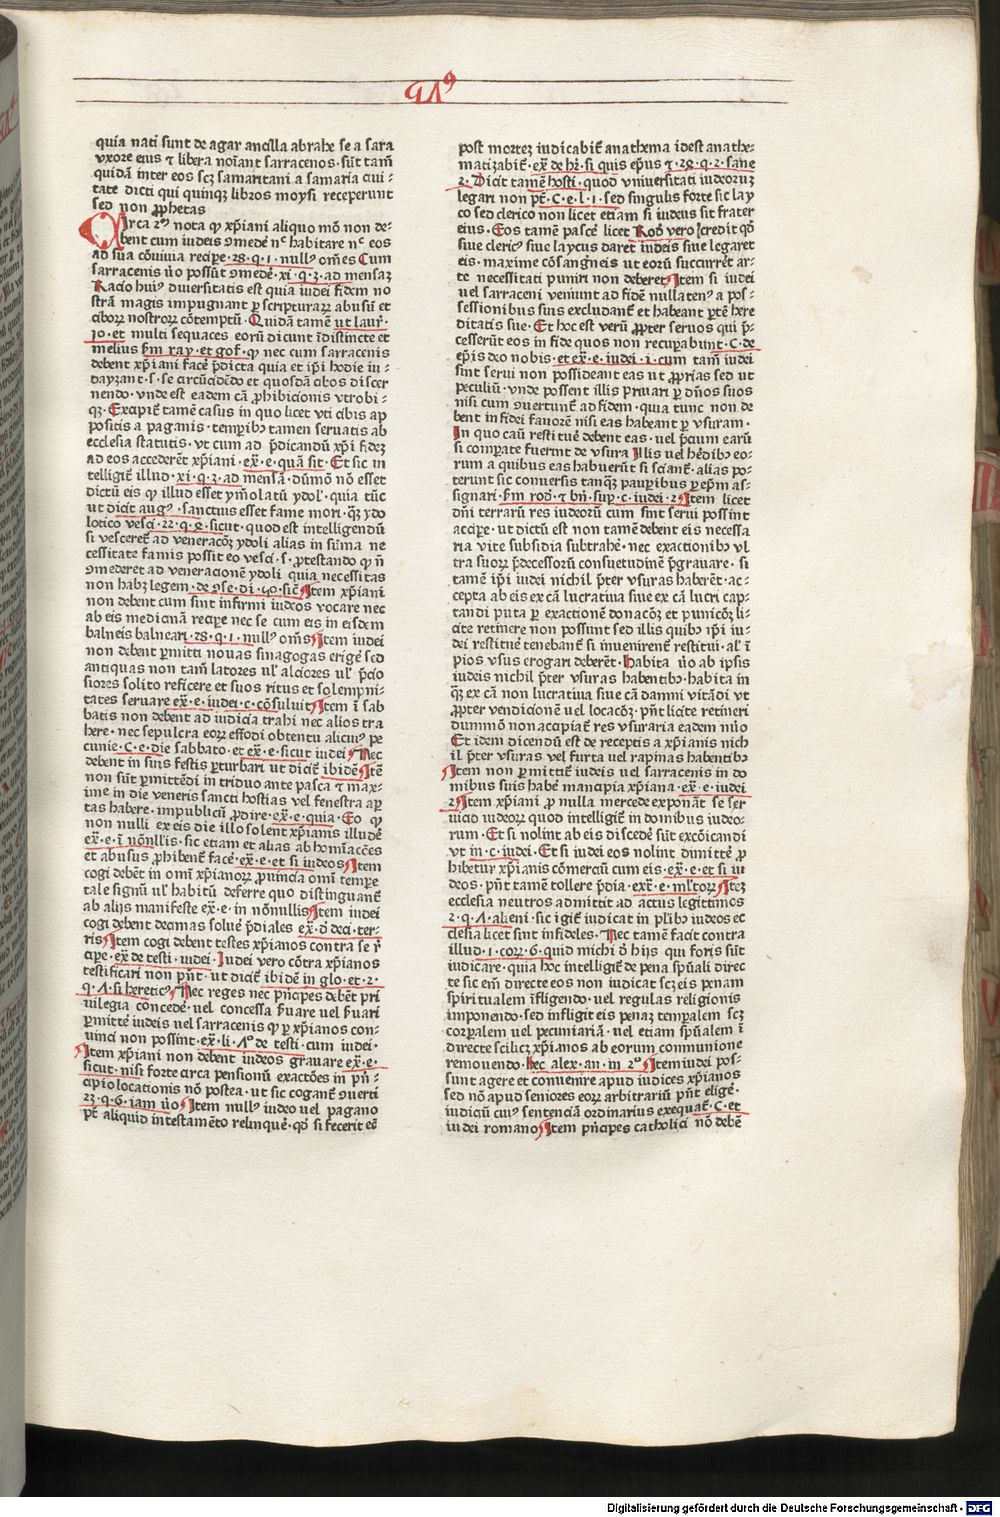 quia nati sunt de agar ancilla abrahe se a sara
vxore eius ⁊ libera noīant sarracenos · sūt tam̄
quidā inter eos scꝫ samaritani a samaria ciui⸗
tate dicti qui quinqꝫ libros moysi receperunt
sed non ꝓphetas
Circa 2ꝰ nota ꝙ xp̄iani aliquo mō non de⸗
bent cum iudeis ꝯmedeř nᶜ habitare nᶜ eos
ad sua cōuiuia recipe · 28 · q · 1 · nullꝰ om̄es Cum
sarracenis v̄o possūt ꝯmedeř · xi · q · 3 · ad mensaꝫ
Racio huiꝰ diuersitatis est quia iudei fidem no
strā magis impugnant ꝑ scripturaꝝ abusū et
ciboꝝ nostroꝝ cōtemptū · Quidā tamē ut laur̄
io · et multi sequaces eorū dicunt īdistincte et
melius ẜm ray · et gof · ꝙ nec cum sarracenis
debent xp̄iani faceř p̄dicta quia et ip̄i hodie iu⸗
dayzant · s · se circūcidēdo et quosdā cibos discer
nendo · vnde est eadem cā ꝓhibicionis vtrobi⸗
qꝫ · Excipiūt̄ tamē casus in quo licet vti cibis ap
positis a paganis · temꝑibꝰ tamen seruatis ab
ecclesia statutis · vt cum ad p̄dicandū xp̄i fideꝫ
ad eos accederēt xp̄iani · ex̄ · e · quā sit · Et sic in
telligit̄ illud · xi · q · 3 · ad mensā · dūmō nō esset
dictū eis ꝙ illud esset ymolatū ydol̄ · quia tūc
ut dicit augꝰ · sanctius esset fame mori · qꝫ ydo
lotico vesci · 22 · q · 2 · sicut · quod est intelligendū
si vesceret̄ ad veneracōꝫ ydoli alias in sūma ne
cessitate famis possit eo vesci · s · ꝓtestando ꝙ n̄
ꝯmederet ad veneracionē ydoli quia necessitas
non habꝫ legem · de ꝯse · di · 50 · sic̄ Item xp̄iani
non debent cum sint infirmi iudeos vocare nec
ab eis medicinā recipe nec se cum eis in eisdem
balneis balneari · 28 · q · 1 · nullꝰ om̄s Item iudei
non debent ꝑmitti nouas sinagogas erigeř sed
antiquas non tam̄ latores ul̄ alciores ul̄ p̄cio
siores solito reficere et suos ritus et solempni⸗
tates seruare ex̄ · e · iudei · c · cōsuluit Item ī sab
batis non debent ad iudicia trahi nec alios tra
here · nec sepulcra eorꝝ effodi obtentu alicuiꝰ pe
cunie · C · e · die sabbato · et ex̄ · e · sicut iudei Nec
debent in suis festis ꝑturbari ut dicit̄ ibidē Itē
non sūt ꝑmittēdi in triduo ante pasca et max⸗
ime in die veneris sancti hostias vel fenestra aꝑ
tas habere · impublicū ꝓdire · ex̄ · e · quia · Eo ꝙ
non nulli ex eis die illo solent xp̄ianis illudeř
ex̄ · e · ī nōnllis · sic etiam et alias ab homīacōes
et abusus ꝓhibent̄ faceř · ex̄ · e · et si iudeos Item
cogi debent in omī xp̄ianoꝝ ꝓuincia omī tempꝛe
tale signū ul̄ habitū deferre quo distinguant̄
ab alijs manifeste ex̄ · e · in nōnullis Item iudei
cogi debent decimas solueř p̄diales ex̄ · d̄ deci · ter⸗
ris Item cogi debent testes xp̄ianos contra se r̄
cipe · ex̄ de testi · iudei · Iudei vero cōtra xp̄ianos
testificari non pn̄t · ut dicit̄ ibidē in glo · et · 2 ·
q · Λ · si hereticꝰ Nec reges nec pn̄cipes debēt pri
uilegia concedeř · uel concessa ẜuare uel ẜuari
ꝑmitteř iudeis uel sarracenis ꝙ ꝑ xp̄ianos con⸗
uinci non possint · ex̄ · li · Λº de testi · cum iudei ·
Item xp̄iani non debent iudeos grauare ex̄ · e ·
sicut · nisi forte circa pensionū exactōes in pn̄⸗
cipio locationis nō postea · ut sic cogant̄ ꝯuerti
23 · q · 6 · iam v̄o Item nullꝰ iudeo uel pagano
pt̄ aliquid in testamēto relinqueř · qđ si fecerit eē
post morteꝫ iudicabit̄ anathema idest anathe⸗
matizabit̄ · ex̄ de hr̄ · si quis ep̄us ⁊ · 28 · q · 2 · sane
2 · Dicit tamē hosti · quod vniuersitati iudeoruꝫ
legari non pt̄ · C · e · l · 1 · sed singulis forte sic lay
co sed clerico non licet etiam si iudeus sit frater
eius · Eos tamē pasceř licet Rođ vero credit qđ
siue clericꝰ siue laycus daret iudeis siue legaret
eis · maxime cōsangneis ut eorū succurrēt ar⸗
te necessitati puniri non deberet Item si iudei
uel sarraceni veniunt ad fidē nullatenꝰ a pos⸗
sessionibus suis excludant̄ et habeant ꝑtē here
ditatis sue · Et hoc est verū ꝓpter seruos qui p̄⸗
cesserūt eos in fide quos non recupabunt · C · de
ep̄is deo nobis · et ex̄ · e · iudei · i · cum tam̄ iudei
sint serui non possideant eas ut ꝓprias sed ut
peculiū · vnde possent illis priuari ꝑ dn̄os suos
nisi cum ꝯuertunt̄ ad fidem · quia tunc non de
bent in fidei fauorē nisi eas habeant ꝑ vsuram ·
In quo caū restitueř debent eas · uel p̄cium earū
si comparate fuerint de vsura Illis uel hēdibꝰ eo⸗
rum a quibus eas habuerūt si sciant̄ · alias po⸗
terunt sic conuersis tanqꝫ pauꝑibus ꝑ ep̄m as⸗
signari · ẜm rođ · ⁊ bn̄ · suꝑ · c · iudei · 2 Item licet
dn̄i terrarū res iudeorū cum sint serui possint
accipe · ut dictū est non tamē debent eis necessa
ria vite subsidia subtraheř · nec exactionibꝰ vl
tra suoꝝ p̄decessorū consuetudinē p̄grauare · si
tamē ip̄i iudei nichil p̄ter vsuras haberēt · ac⸗
cepta ab eis ex cā lucratiua siue ex cā lucri cap⸗
tandi puta ꝑ exactionē donacōꝫ et punicōꝫ li⸗
cite retinere non possunt sed illis quibꝰ ip̄i iu⸗
dei restitueř tenebant̄ si inuenirent̄ restitui · al̄ ī
pios vsus erogari deberēt · Habita v̄o ab ipsis
iudeis nichil p̄ter vsuras habentibꝰ · habita in
qꝫ ex cā non lucratiua siue cā damni vitādi vt
ꝓpter vendicionē uel locacōꝫ · pn̄t licite retineri
dummō non accipiat̄ res vsuraria eadem nūo
Et idem dicendū est de receptis a xp̄ianis nich
il p̄ter vsuras vel furta uel rapinas habentibꝰ
Item non ꝑmittit̄ iudeis uel sarracenis in do
mibus suis habeř mancipia xp̄iana · ex̄ · e · iudei
2 Item xp̄iani ꝓ nulla mercede exponāt se ser
uicio iudeoꝝ quod intelligit̄ in domibus iudeo⸗
rum · Et si nolint ab eis discedeř sūt excōicandi
vt in · c · iudei · Et si iudei eos nolint dimitteř ꝓ
hibetur xp̄ianis cōmerciū cum eis · ex̄ · e · et si iu
deos · pn̄t tamē tollere p̄dia · ex̄ · e · ml̄torꝝ Iteꝫ
ecclesia neutros admittit ad actus legittimos
2 · q · Λ · alieni · sic igit̄ iudicat in pl̄ibꝰ iudeos ec
clesia licet sint infideles · Nec tamē facit contra
illud · 1 · corꝝ · 6 · quid michi d̄ hijs qui foris sūt
iudicare · quia hoc intelligit̄ de pena spūali direc
te sic em̄ directe eos non iudicat scꝫ eis penam
spiritualem īfligendo · uel regulas religionis
imponendo · sed infligit eis penaꝫ temꝑalem scꝫ
corꝑalem uel pecuniariā · uel etiam spūalem ī
directe scilicꝫ xp̄ianos ab eorum communione
remouendo · Hec alex · an · in 2º Item iudei pos⸗
sunt agere et conuenire apud iudices xp̄ianos
sed nō apud seniores eorꝝ arbitrariū pn̄t eligeř ·
iudiciū cuiꝰ sentenciā ordinarius exequat̄ · C · et
iudei romano Item pn̄cipes catholici nō debēt